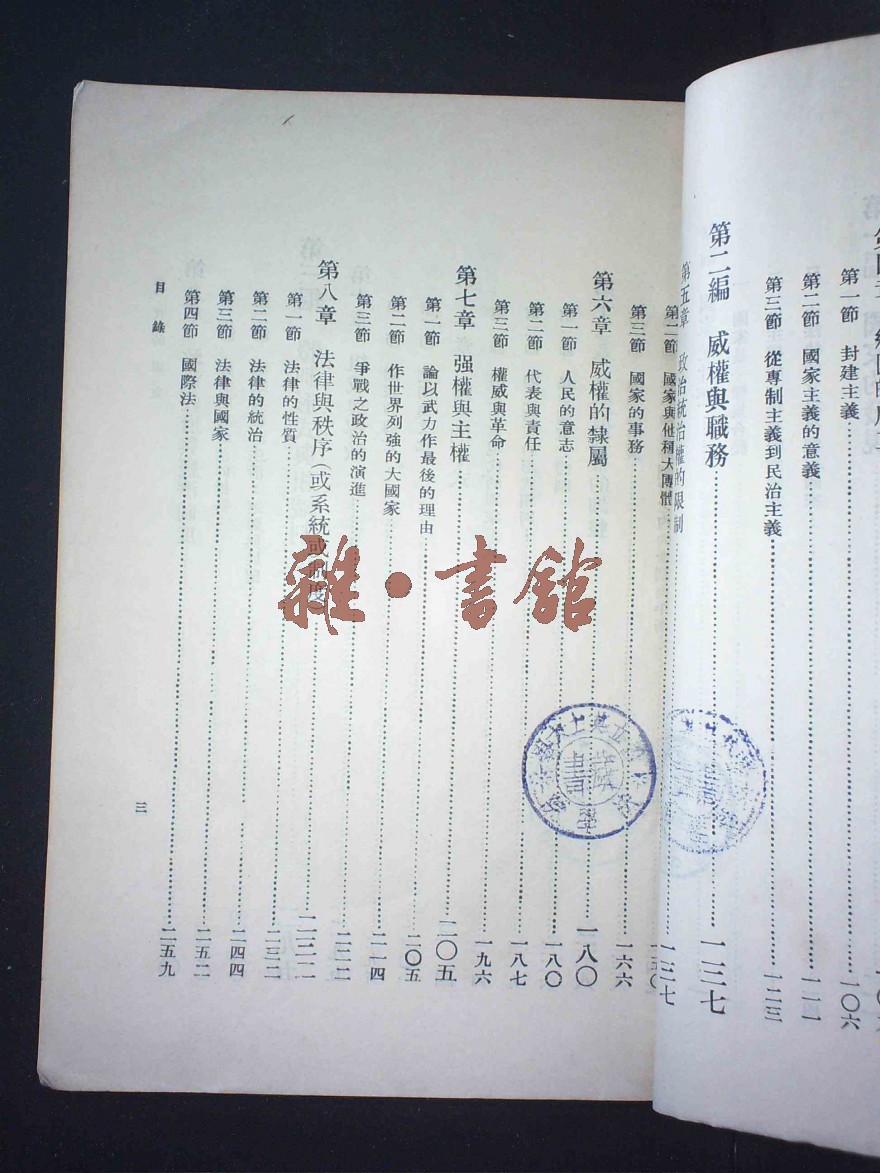 第一節 封建主義……一〇六
第二節 國家主義的意義……一一一
第三節 從專制主義到民治主義……一二三
第二編 威權與職務……一三七
第五章 政治統治權的限制……一三七
第二節 國家與他種大團體……一五〇
第三節 國家的事務……一六六
第六章 威權的隸屬……一八〇
第一節 人民的意志……一八〇
第二節 代表與責任……一八七
第三節 權威與革命……一九六
第七章 强權與主權……二〇五
第一節 論以武力作最後的理由……二〇五
第二節 作世界列強的大國家……二一四
第三節 爭戰之政治的演進……二二二
第八章 法律與秩序（或系統或制度）……二三二
第一節 法律的性質……二三二
第二節 法律的統治……二四四
第三節 法律與國家……二五二
第四節 國際法……二五九
目錄
三
雜·書館
藏書